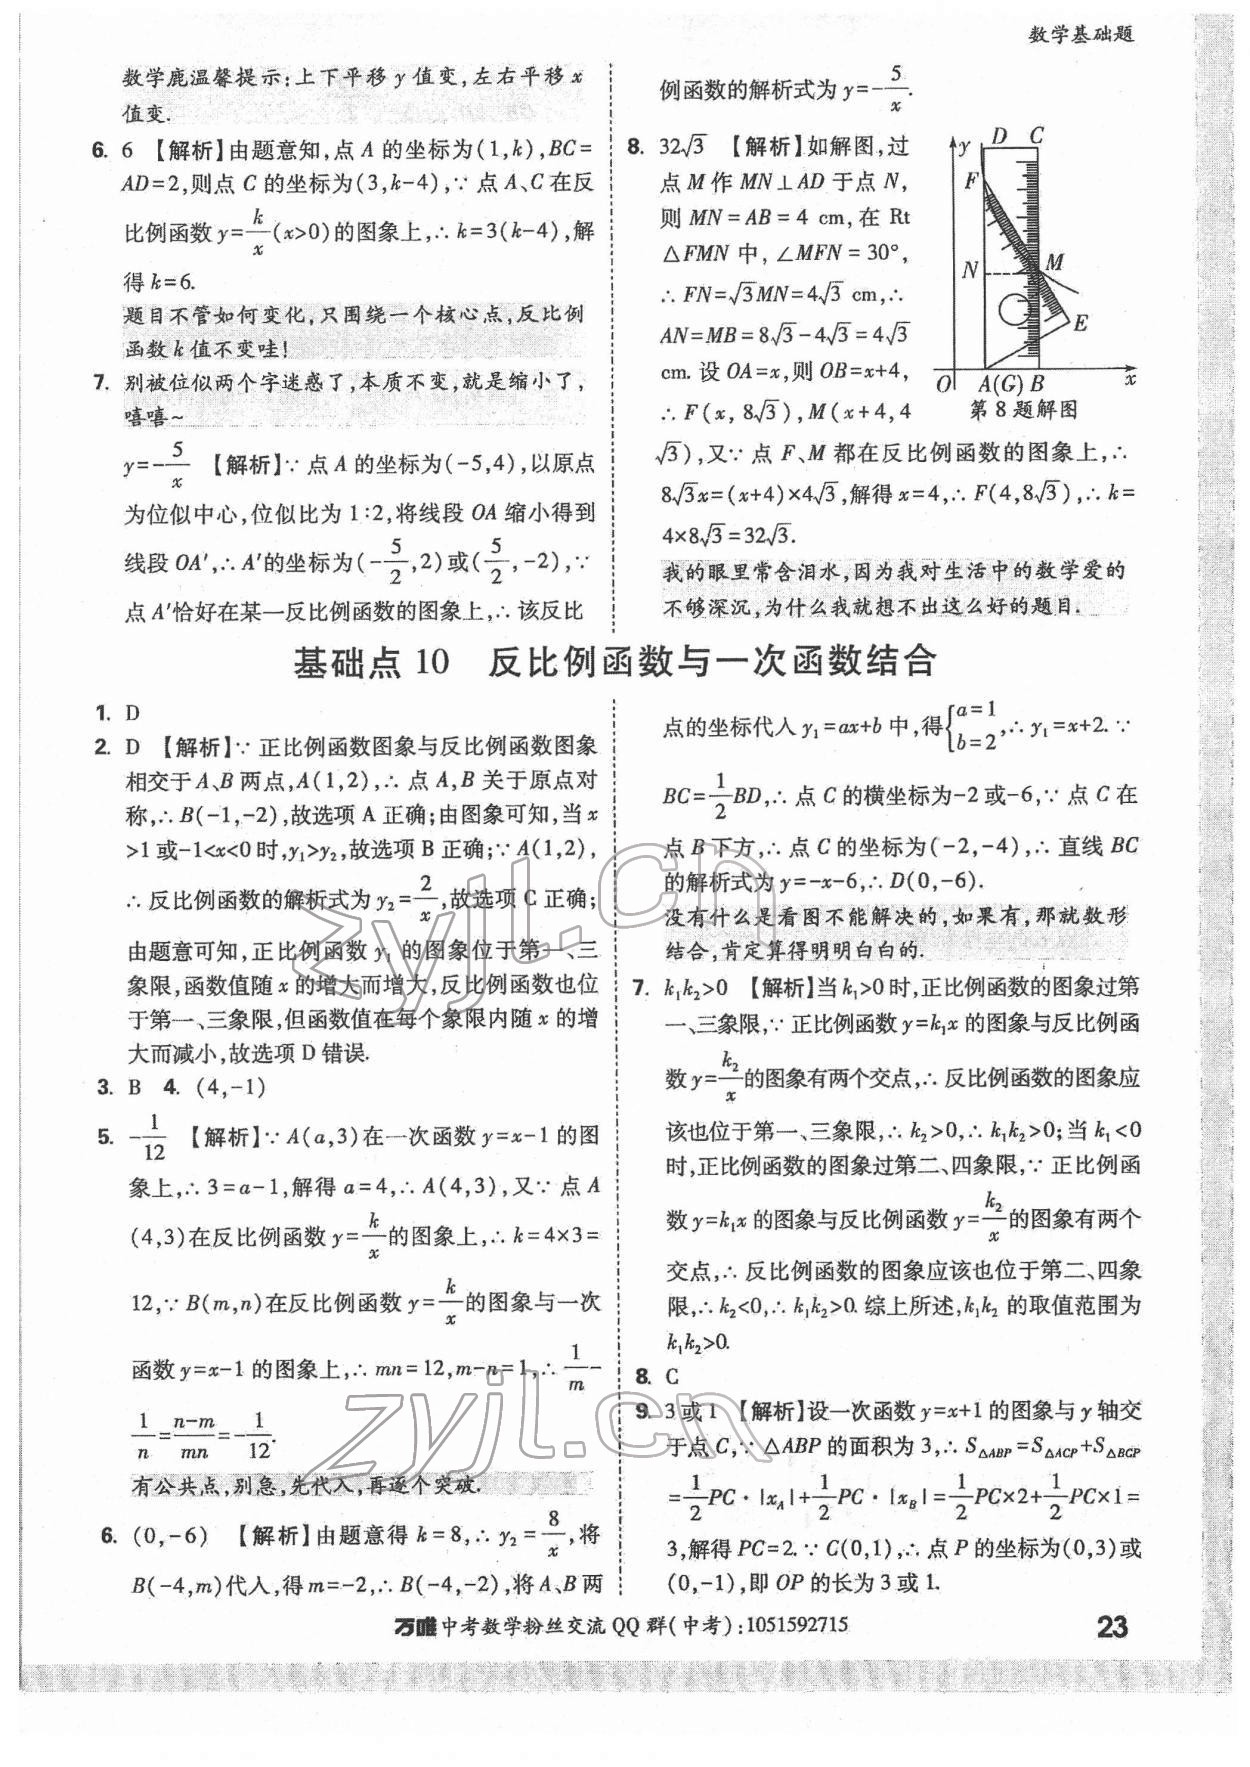 数学基础题
数学鹿温馨提示:上下平移y值变,左右平移x
值变.
6. 6 【解析】由题意知,点A的坐标为(1,k),BC=
AD=2,则点C的坐标为(3,k-4),∵点A、C在反
比例函数y=k/x(x>0)的图象上,∴k=3(k-4),解
得k=6.
题目不管如何变化,只围绕一个核心点,反比例
函数k值不变哇!
7. 别被位似两个字迷惑了,本质不变,就是缩小了,
嘻嘻~
y=-5/x 【解析】∵点A的坐标为(-5,4),以原点
为位似中心,位似比为1:2,将线段OA缩小得到
线段OA′,∴A′的坐标为(-5/2,2)或(5/2,-2),∵
点A′恰好在某一反比例函数的图象上,∴该反比
例函数的解析式为y=-5/x.
8. 32√3 【解析】如解图,过
点M作MN⊥AD于点N,
则MN=AB=4 cm,在Rt
△FMN中,∠MFN=30°,
∴FN=√3MN=4√3 cm,∴
AN=MB=8√3-4√3=4√3
cm.设OA=x,则OB=x+4,
∴F(x,8√3),M(x+4,4
√3),又∵点F、M都在反比例函数的图象上,∴
8√3x=(x+4)×4√3,解得x=4,∴F(4,8√3),∴k=
4×8√3=32√3.
我的眼里常含泪水,因为我对生活中的数学爱的
不够深沉,为什么我就想不出这么好的题目.
y D C
F
N M
E
O A(G) B x
第8题解图
基础点10 反比例函数与一次函数结合
1. D
2. D 【解析】∵正比例函数图象与反比例函数图象
相交于A、B两点,A(1,2),∴点A,B关于原点对
称,∴B(-1,-2),故选项A正确;由图象可知,当x
>1或-1<x<0时,y₁>y₂,故选项B正确;∵A(1,2),
∴反比例函数的解析式为y₂=2/x,故选项C正确;
由题意可知,正比例函数y₁的图象位于第一、三
象限,函数值随x的增大而增大,反比例函数也位
于第一、三象限,但函数值在每个象限内随x的增
大而减小,故选项D错误.
3. B 4. (4,-1)
5. -1/12 【解析】∵A(a,3)在一次函数y=x-1的图
象上,∴3=a-1,解得a=4,∴A(4,3),又∵点A
(4,3)在反比例函数y=k/x的图象上,∴k=4×3=
12,∵B(m,n)在反比例函数y=k/x的图象与一次
函数y=x-1的图象上,∴mn=12,m-n=1,∴1/m-
1/n=(n-m)/mn=-1/12.
有公共点,别急,先代入,再逐个突破.
6. (0,-6) 【解析】由题意得k=8,∴y₂=8/x,将
B(-4,m)代人,得m=-2,∴B(-4,-2),将A、B两
点的坐标代人y₁=ax+b中,得{a=1 b=2,∴y₁=x+2.∵
BC=1/2BD,∴点C的横坐标为-2或-6,∵点C在
点B下方,∴点C的坐标为(-2,-4),∴直线BC
的解析式为y=-x-6,∴D(0,-6).
没有什么是看图不能解决的,如果有,那就数形
结合,肯定算得明明白白的.
7. k₁k₂>0 【解析】当k₁>0时,正比例函数的图象过第
一、三象限,∵正比例函数y=k₁x的图象与反比例函
数y=k₂/x的图象有两个交点,∴反比例函数的图象应
该也位于第一、三象限,∴k₂>0,∴k₁k₂>0;当k₁<0
时,正比例函数的图象过第二、四象限,∵正比例函
数y=k₁x的图象与反比例函数y=k₂/x的图象有两个
交点,∴反比例函数的图象应该也位于第二、四象
限,∴k₂<0,∴k₁k₂>0.综上所述,k₁k₂的取值范围为
k₁k₂>0.
8. C
9. 3或1 【解析】设一次函数y=x+1的图象与y轴交
于点C,∵△ABP的面积为3,∴S△ABP=S△ACP+S△BCP
=1/2PC·|xA|+1/2PC·|xB|=1/2PC×2+1/2PC×1=
3,解得PC=2.∵C(0,1),∴点P的坐标为(0,3)或
(0,-1),即OP的长为3或1.
万唯中考数学粉丝交流QQ群(中考):1051592715
23
zyjl.cn
zyjl.cn